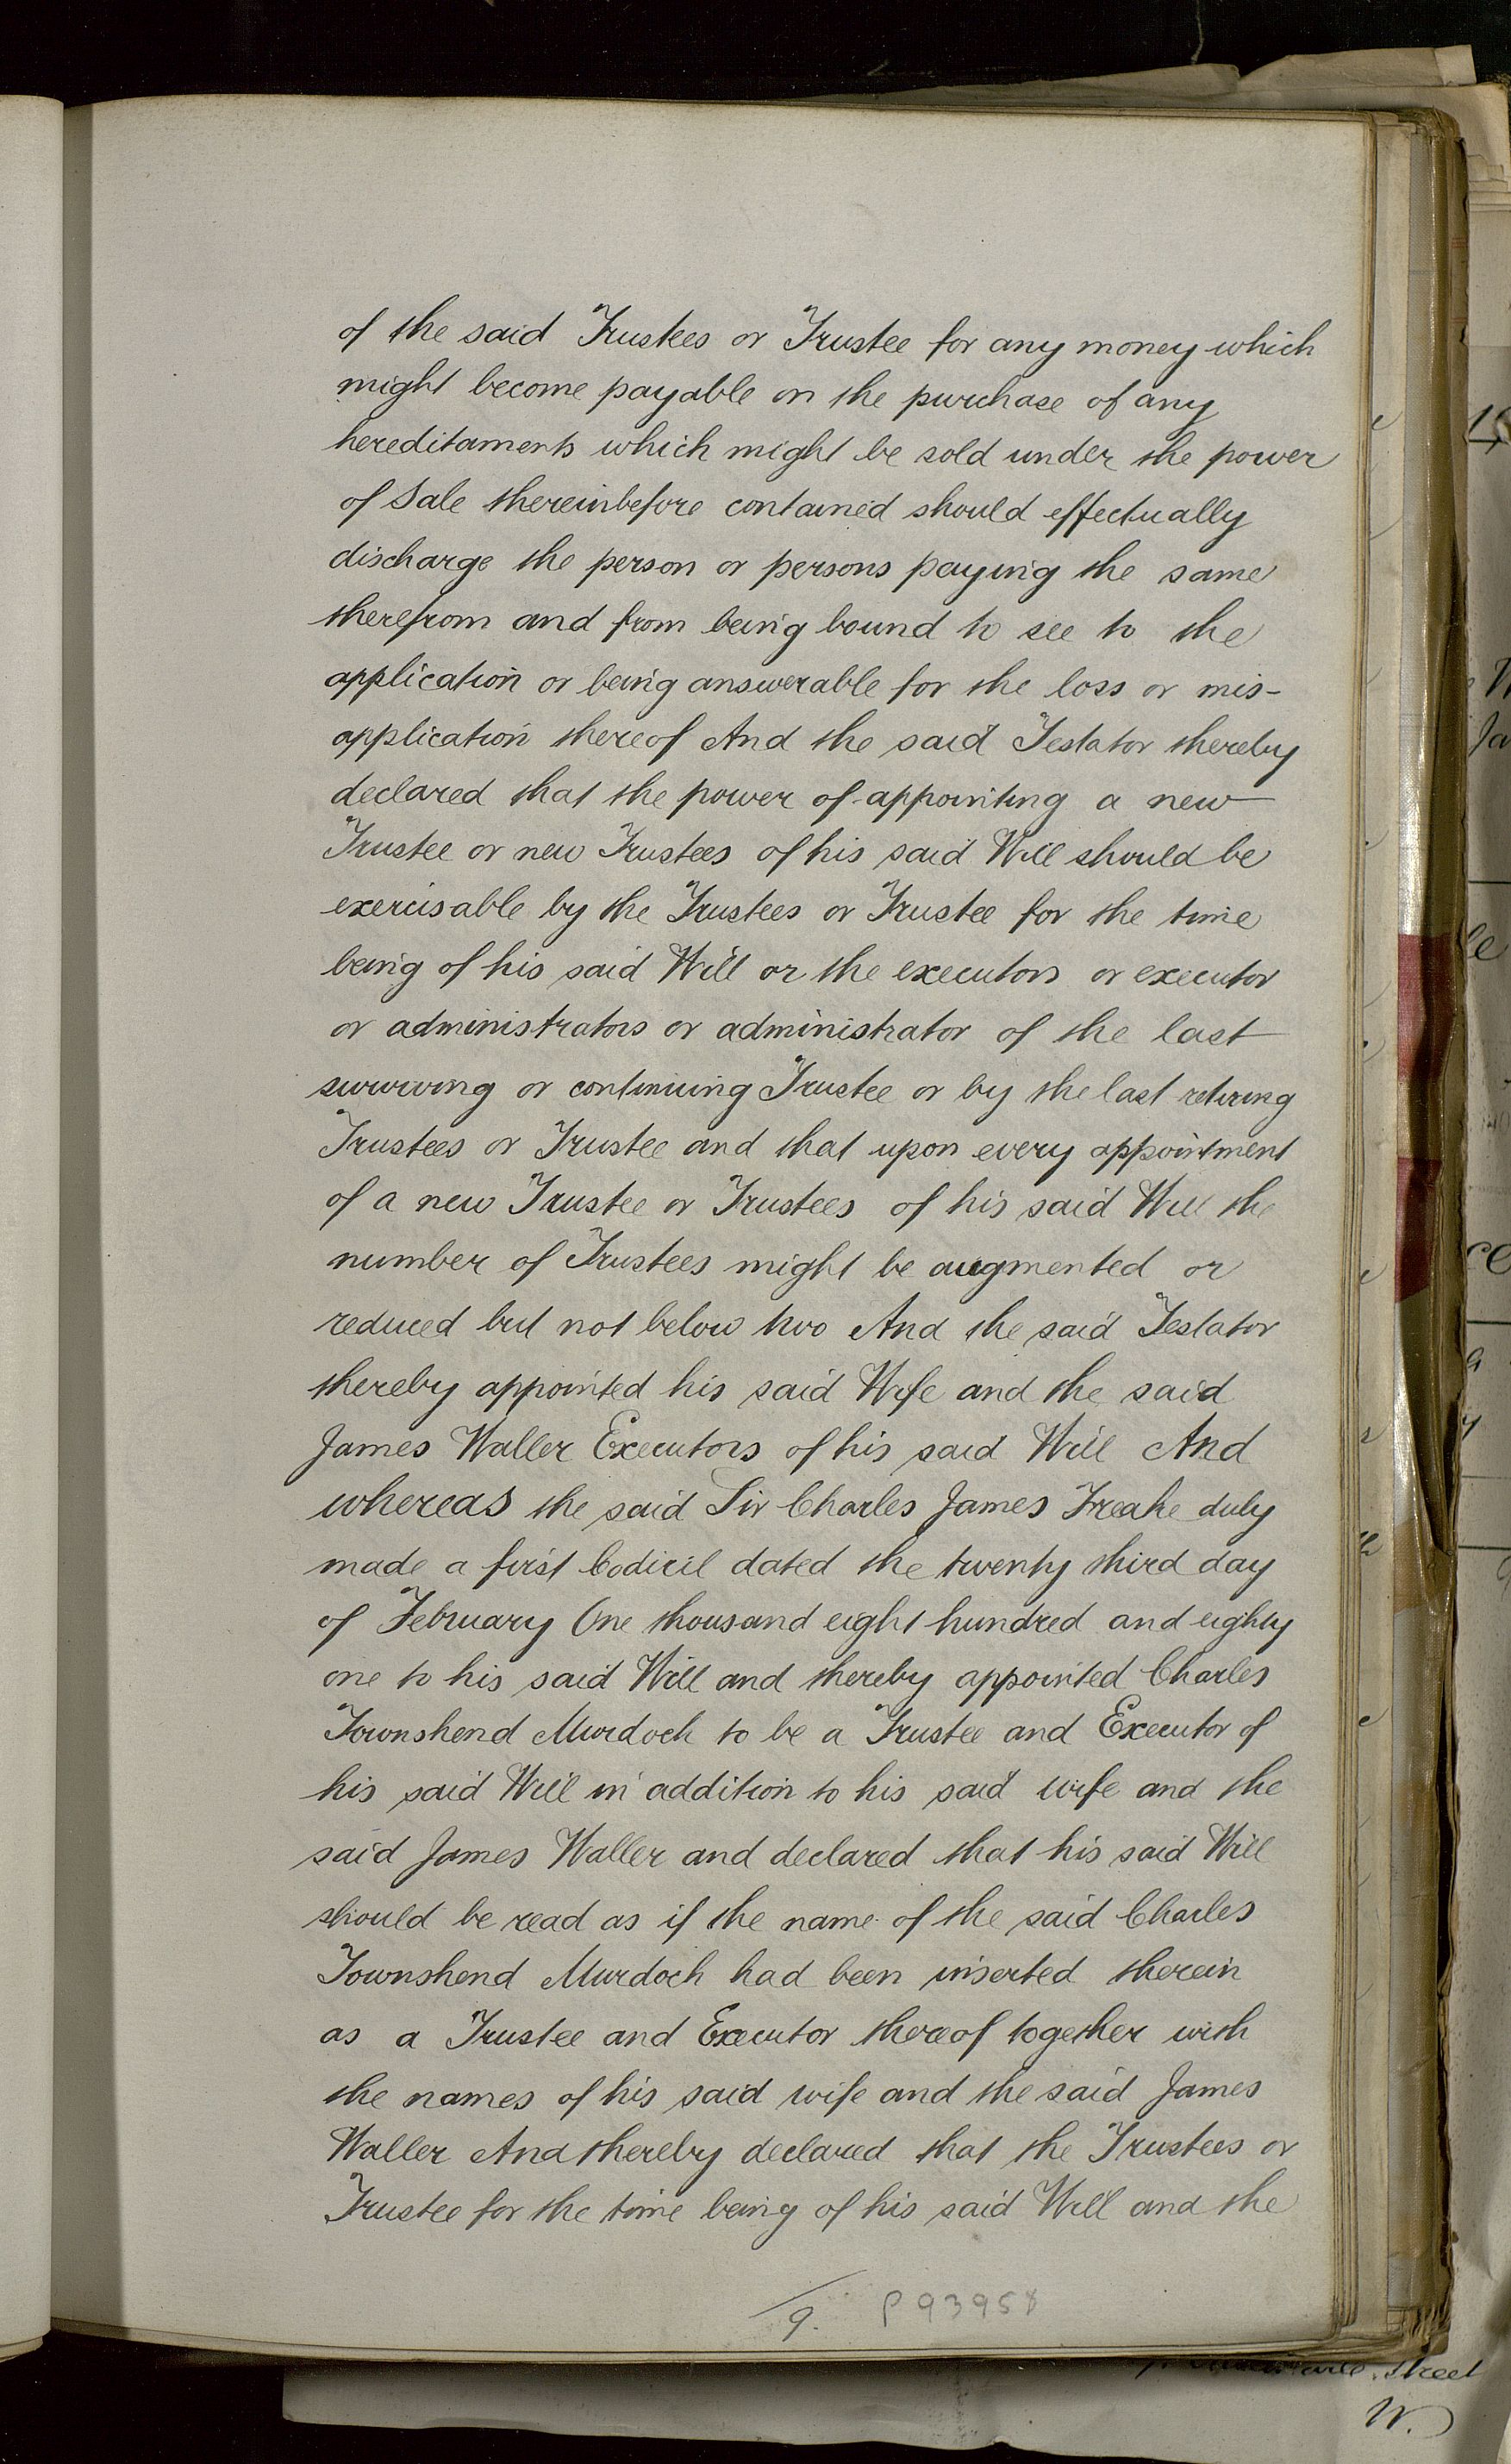 of the said Trustees or Trustee for any money which
might become payable on the purchase of any
hereditaments which might be sold under the power
of Sale thereinbefore contained should effectually
discharge the person or persons paying the same
therefrom and from being bound to see to the
application or being answerable for the loss or mis-
application thereof And the said Testator thereby
declared that the power of appointing a new
Trustee or new Trustees of his said Will should be
exercisable by the Trustees or Trustee for the time
being of his said Will or the executors or executor
or administrators or administrator of the last
surviving or continuing Trustee or by the last retiring
Trustees or Trustee and that upon every appointment
of a new Trustee or Trustees of his said Will the
number of Trustees might be augmented or
reduced but not below two And the said Testator
thereby appointed his said Wife and the said
James Waller Executors of his said Will And
whereas the said Sir Charles James Freake duly
made a first Codicil dated the twenty third day
of February One thousand eight hundred and eighty
one to his said Will and thereby appointed Charles
Townshend Murdoch to be a Trustee and Executor of
his said Will in addition to his said wife and the
said James Waller and declared that his said Will
should be read as if the name of the said Charles
Townshend Murdoch had been inserted therein
as a Trustee and Executor thereof together with
the names of his said wife and the said James
Waller And thereby declared that the Trustees or
Trustee for the time being of his said Will and the
9. P93958
street
W.